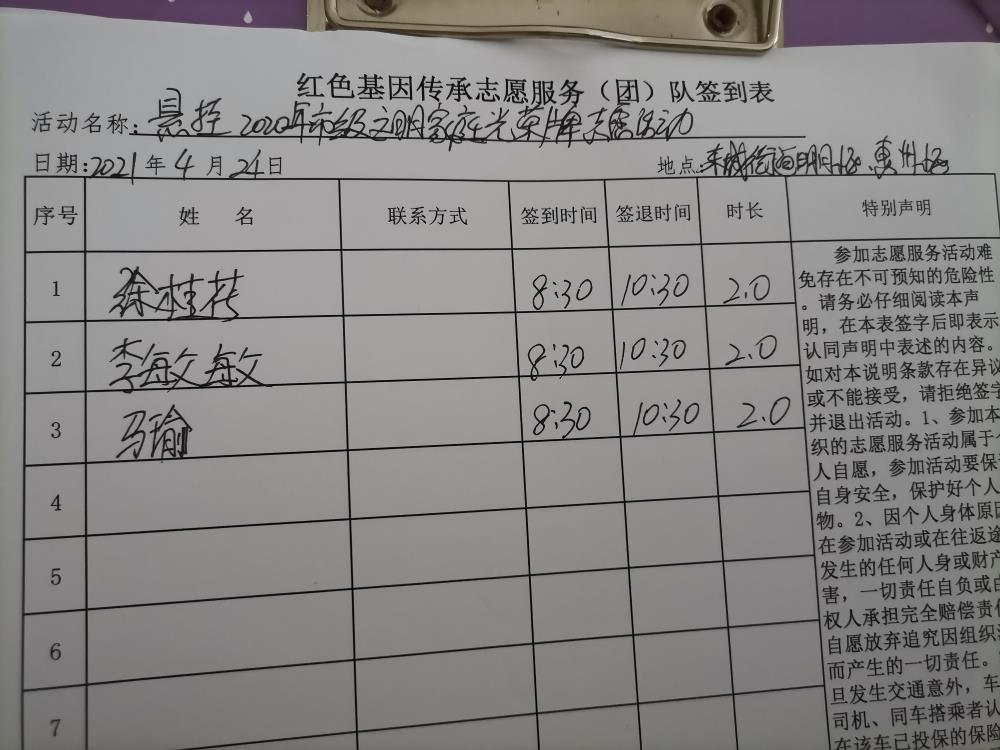 红色基因传承志愿服务（团）队签到表
活动名称：悬挂2020年市级文明家庭光荣牌志愿活动
日期：2021年4月24日 地点
序号 姓名 联系方式 签到时间 签退时间 时长 特别声明
1 徐桂 8:30 10:30 2.0
2 李敏敏 8:30 10:30 2.0
3 马瑜 8:30 10:30 2.0
4
5
6
7
参加志愿服务活动难
免存在不可预知的危险性
。请务必仔细阅读本声
明，在本表签字后即表示
认同声明中表述的内容。
如对本说明条款存在异议
或不能接受，请拒绝签字
并退出活动。1、参加本
织的志愿服务活动属于
人自愿，参加活动要保
自身安全，保护好个人
物。2、因个人身体原因
在参加活动或在往返途
发生的任何人身或财产
害，一切责任自负或由
权人承担完全赔偿责任
自愿放弃追究因组织
而产生的一切责任。
旦发生交通意外，车
司机、同车搭乘者认
在该车已投保的保险